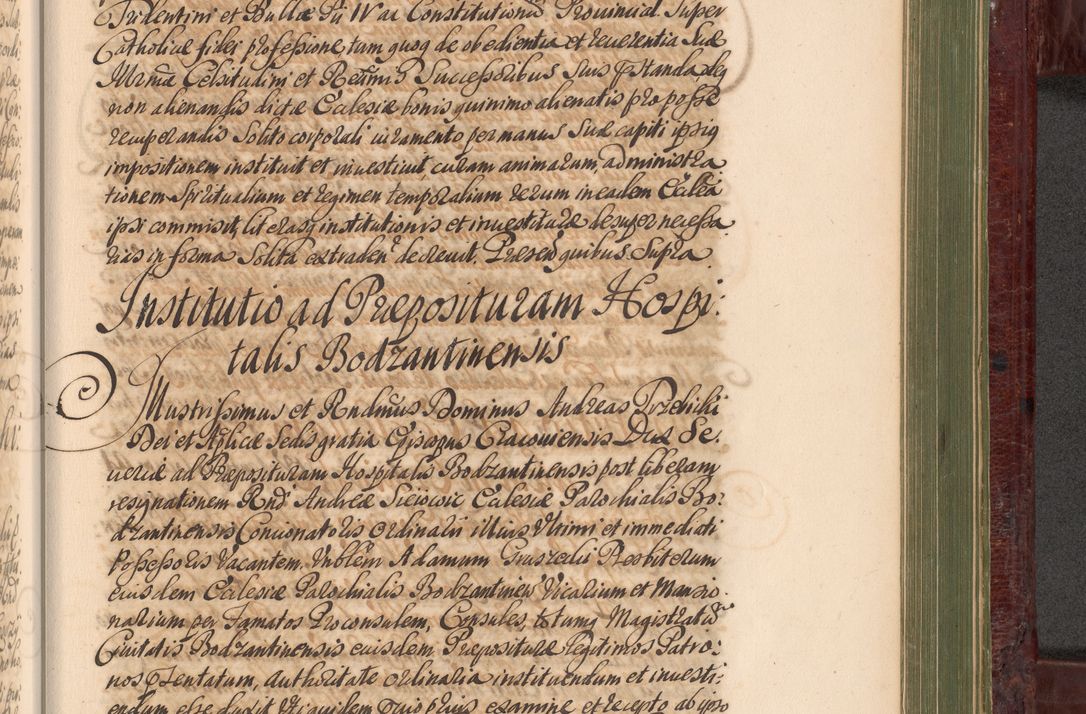 Tridentini et Bullæ Pii IV ac Constitutionũ Prouincial. super
Catholicæ fidei professione tum quoq de obedientia et reuerentia suæ
Illrimæ Celsitudini et Successoribus suis pstanda, deq
non alienandis dictæ Ecclesiæ bonis quinimo alienatis pro posse
recuperandis solito corporali iuramento per manus suæ capiti ipsiq
impositionem instituit et inuestiuit, curam animarum, administra
tionem spiritualium et regimen temporalium rerum in eadem Ecclia
ipsi commisit, literasq institutionis et inuestituræ desuper necessa
rias in forma solita extraden decreuit. Præsen quibus supra
Institutio ad Præposituram Hospi:
talis Bodzantinensis
Illustrissimus et Rndmus Dominus Andreas Trzebicki
Dei et Aplicæ Sedis gratia Episcopus Cracouiensis Dux Se:
ueriæ ad Præposituram Hospitalis Bodzantinensis post liberam
resignationem Rndi Andreæ Ecclesiæ Parochialis Bo:
dzantinensis Concionatoris Ordinarii illius Vltimi et immediati
Possessoris Vacantem, Vnblem Adamum Presbiterum
eiusdem Ecclesiæ Parochialis Bodzantinen Vicarium et Mansio
narium per Famatos Proconsulem, Consules, totumq Magistratũ
Ciuitatis Bodzantinensis eiusdem Præposituræ legitimos Patro:
nos psentatum, authoritate ordinaria instituendum et inuesti:
endum esse duxit Vti quidem præuio prius examine et recepto ab ipso